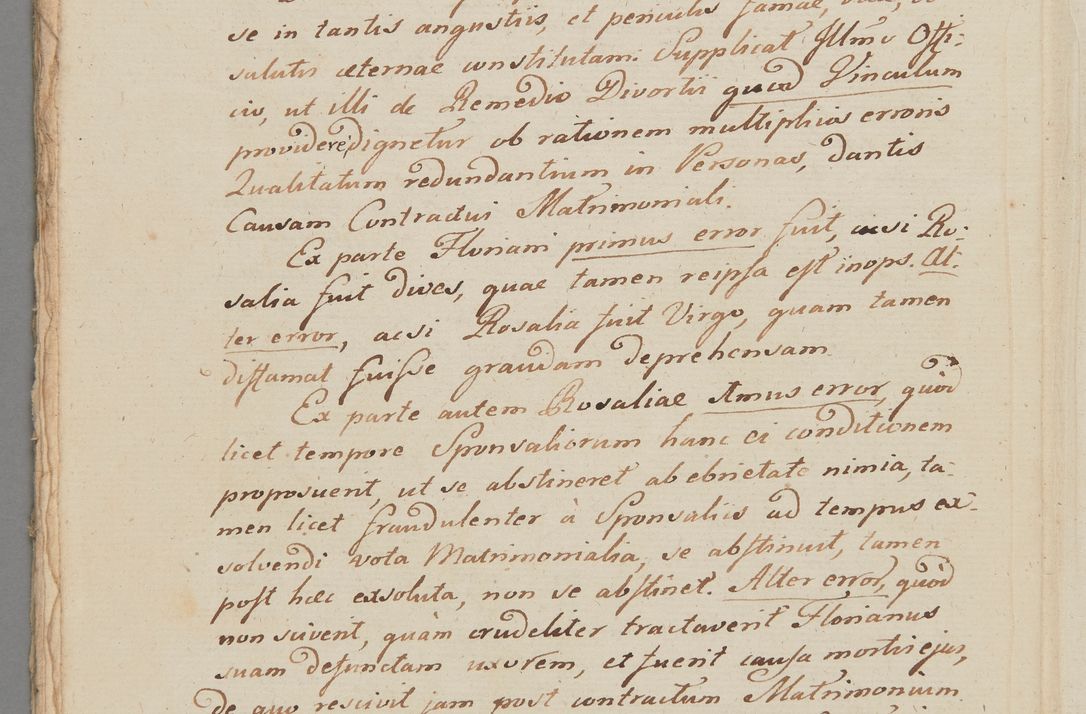 se in tantis angustiis, et periculis famae, vitae,
salutis æternae constitutam. Supplicat Illmo Offi:
cio, ut illi de Remedio Divortii quoad Vinculum
providere dignetur ob rationem multiplicis erroris
Qualitatum redundantium in Personas, dantis
Causam Contractui Matrimoniali.
Ex parte Floriani primus error fuit, acsi Ro:
salia fuit dives, quae tamen reipsa est inops. Al:
ter error, acsi Rosalia fuit Virgo, quam tamen
diffamat fuisse gravidam deprehensam
Ex parte autem Rosaliae 1mus error, quòd
licet tempore Sponsaliorum hanc ei conditionem
proposuerit, ut se abstineret ab ebrietate nimia, ta:
men licet fraudulenter à Sponsaliis ad tempus ex:
solvendi vota Matrimonialia, se abstinuit, tamen
post hæc exsoluta, non se abstinet. Alter error, quòd
non sciverit, quàm crudeliter tractaverit Florianus
suam defunctam uxorem, et fuerit causa mortis ejus,
de quo rescivit jam post contractum Matrimonium